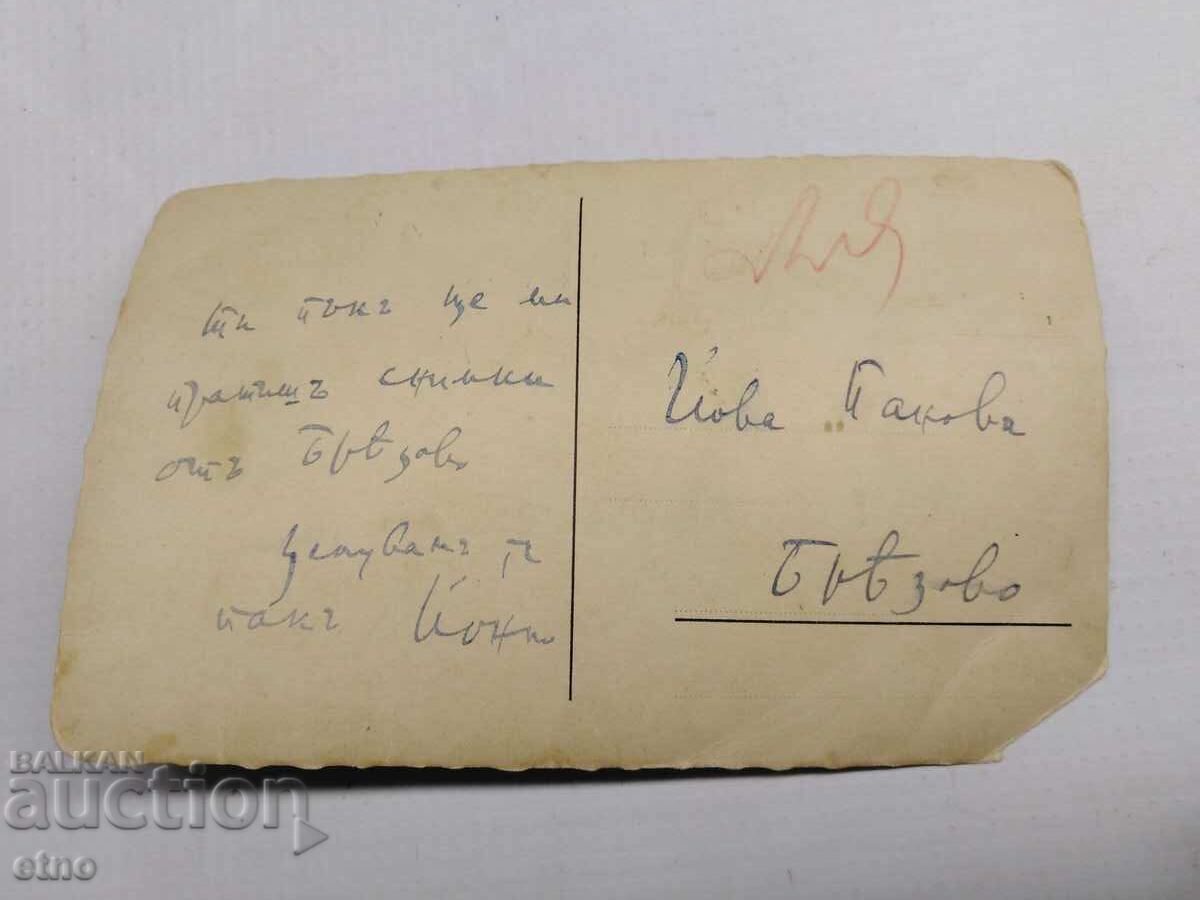 ти пъкъ ще ми
пратишъ снимки
отъ Брѣзово
Целувамъ те
пакъ
Йова Панова
Брѣзово
BALKAN
auction
etno